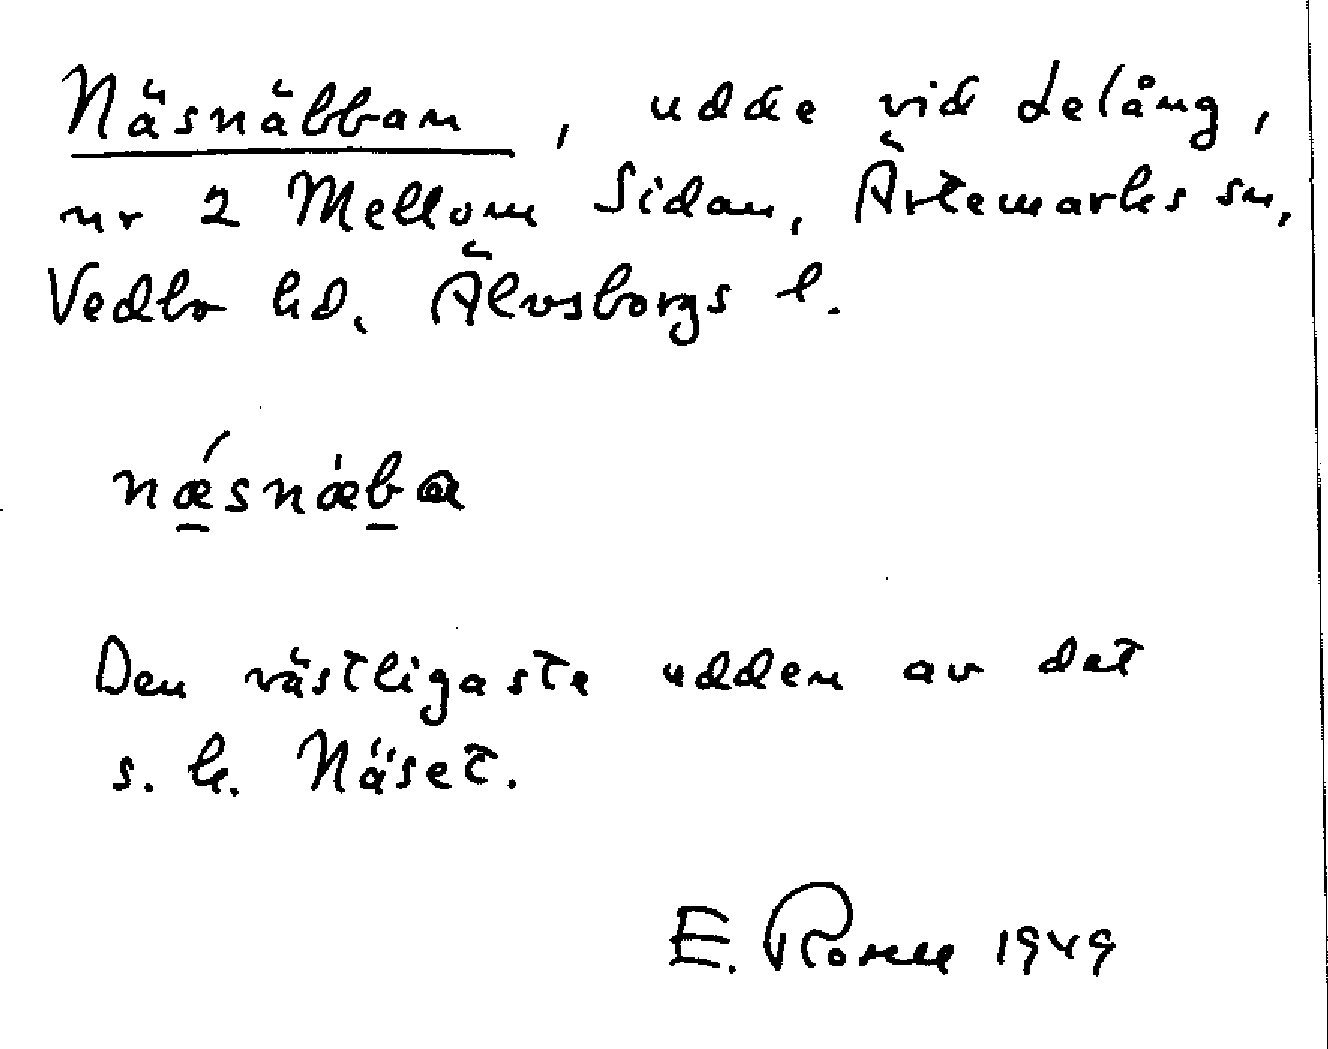 Näsnäbban, udde vid Lelång,
nr 2 Mellom Sidan, Ärtemarks sn,
Vedbo hd, Älvsborgs l.
nǽ̲snæb̲a
Den västligaste udden av det
s. k. Näset.
E. Rosell 1949